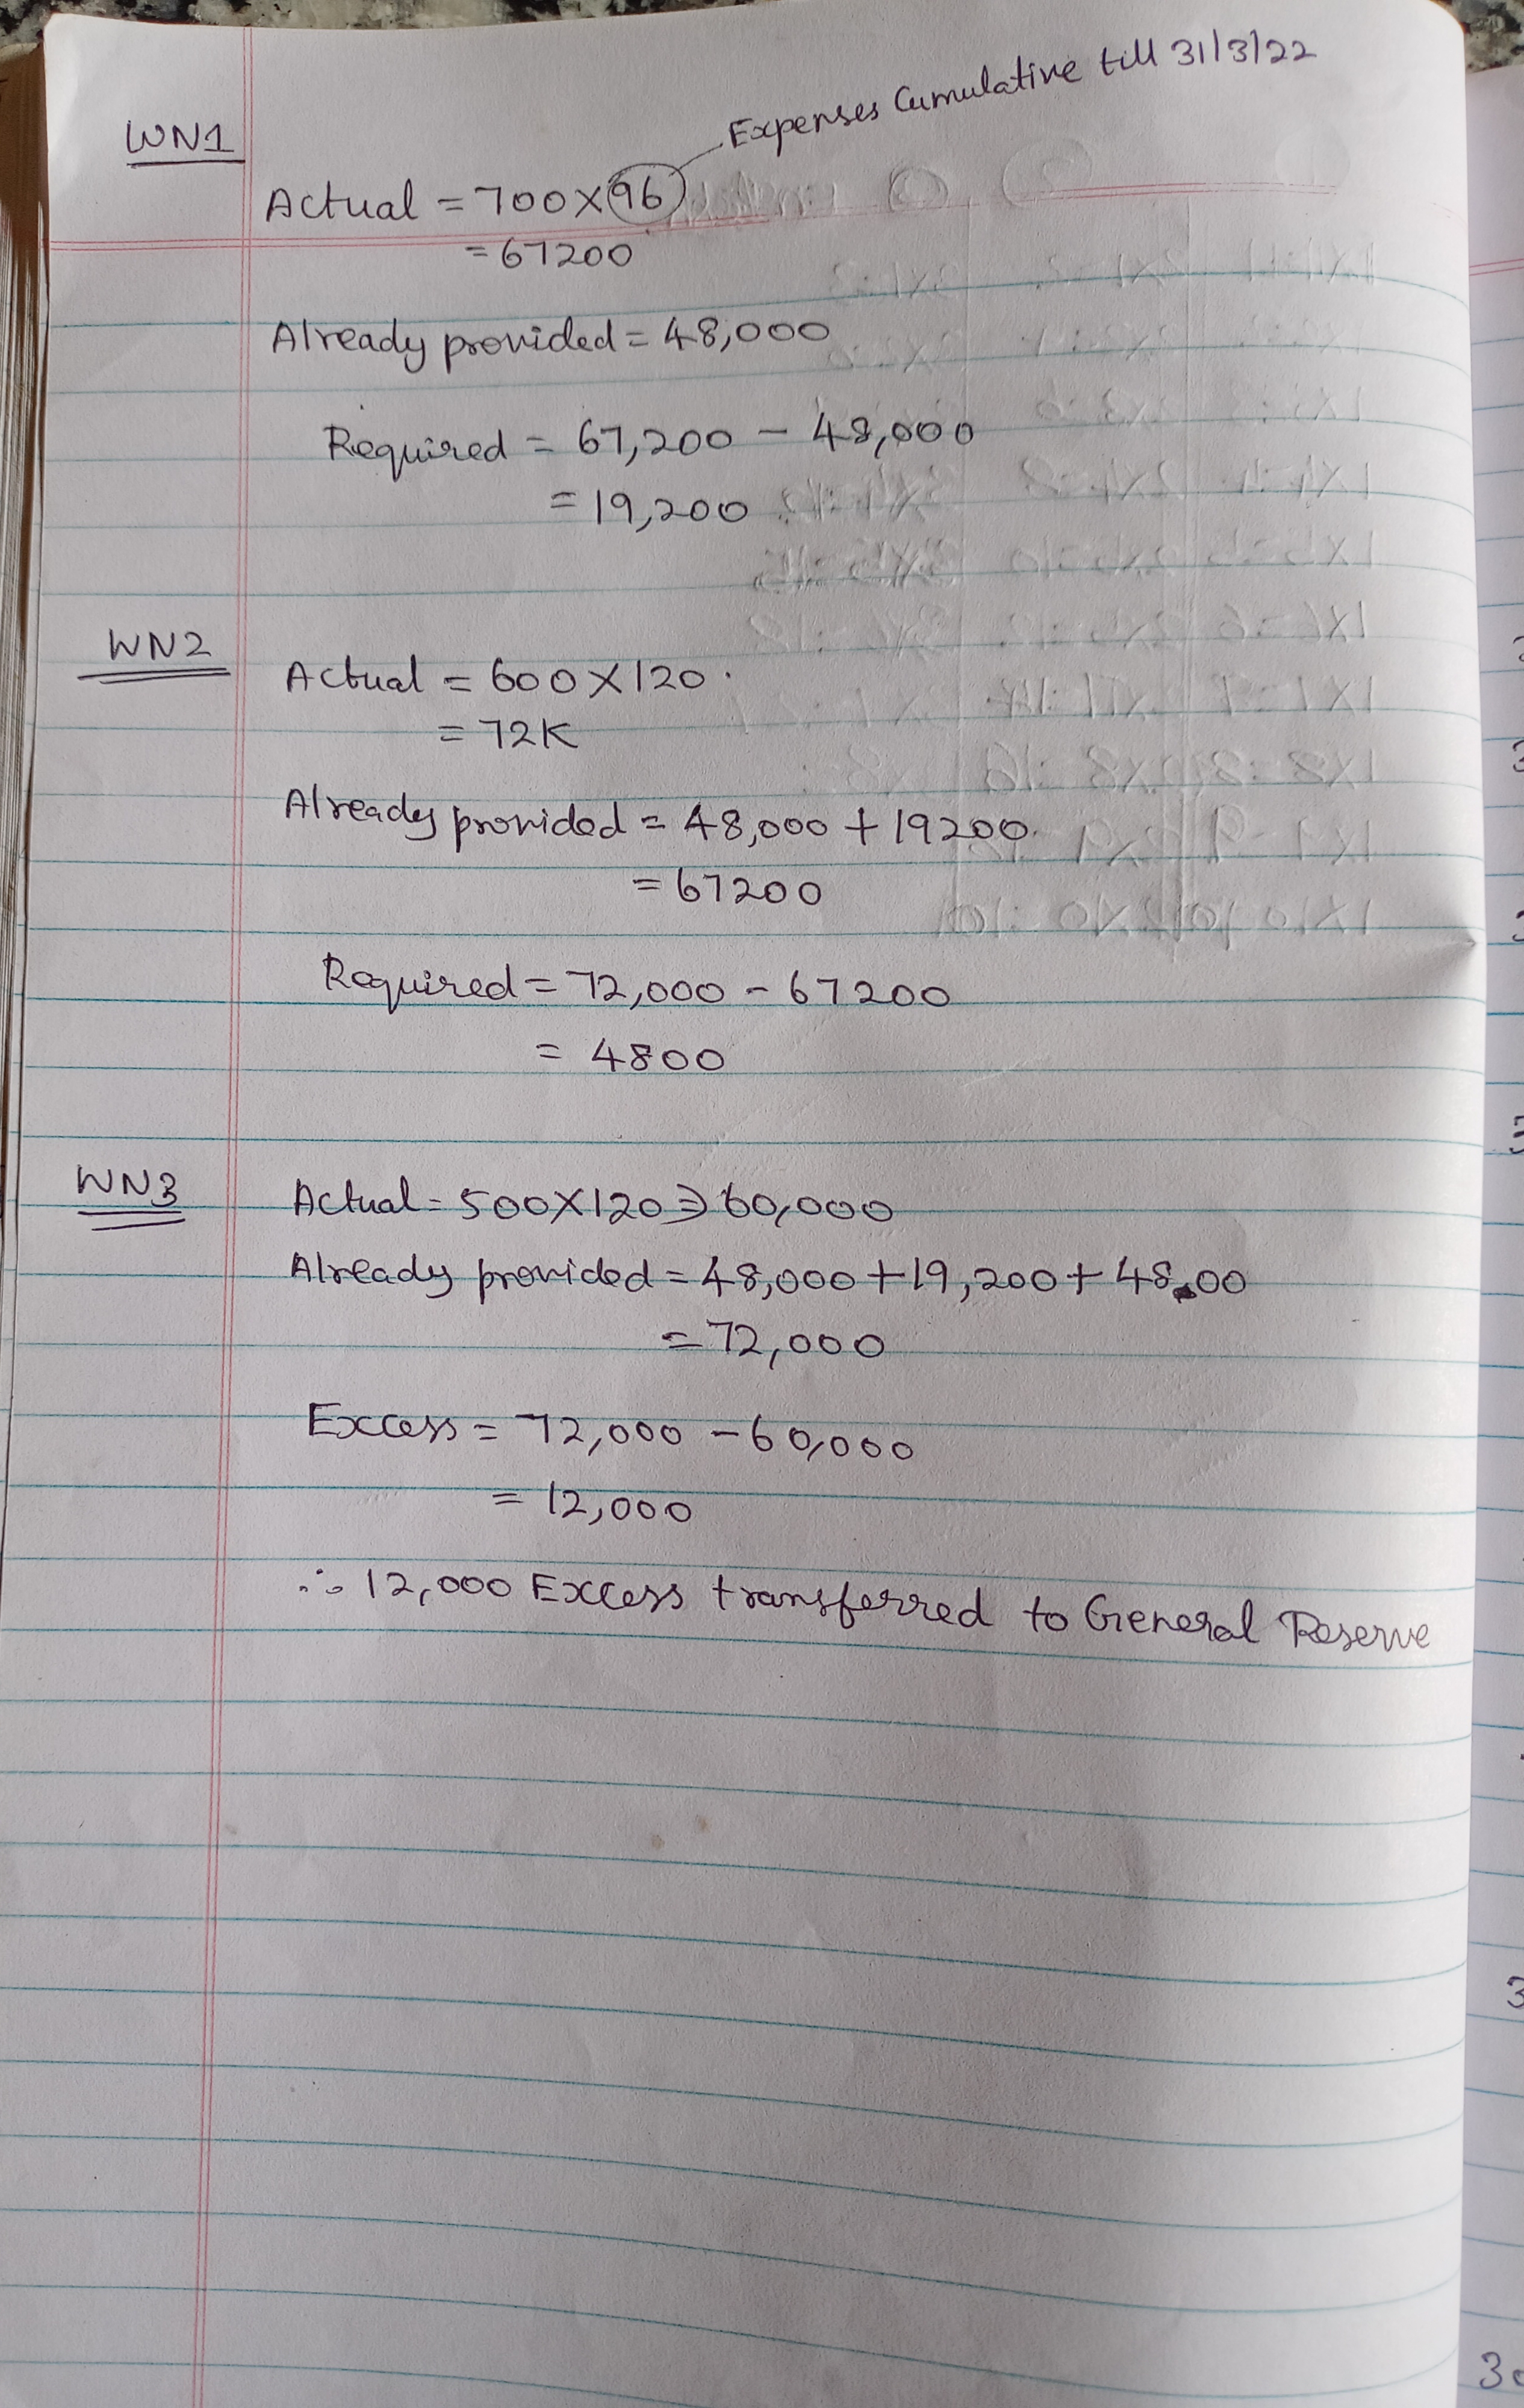 Expenses Cumulative till 31/3/22
WN1
Actual = 700X96
= 67200
Already provided = 48,000
Required = 67,200 - 48,000
= 19,200
WN2
Actual = 600X120
= 72K
Already provided = 48,000 + 19200
= 67200
Required = 72,000 - 67200
= 4800
WN3
Actual = 500X120 ⇒ 60,000
Already provided = 48,000 + 19,200 + 4800
= 72,000
Excess = 72,000 - 60,000
= 12,000
∴ 12,000 Excess transferred to General Reserve